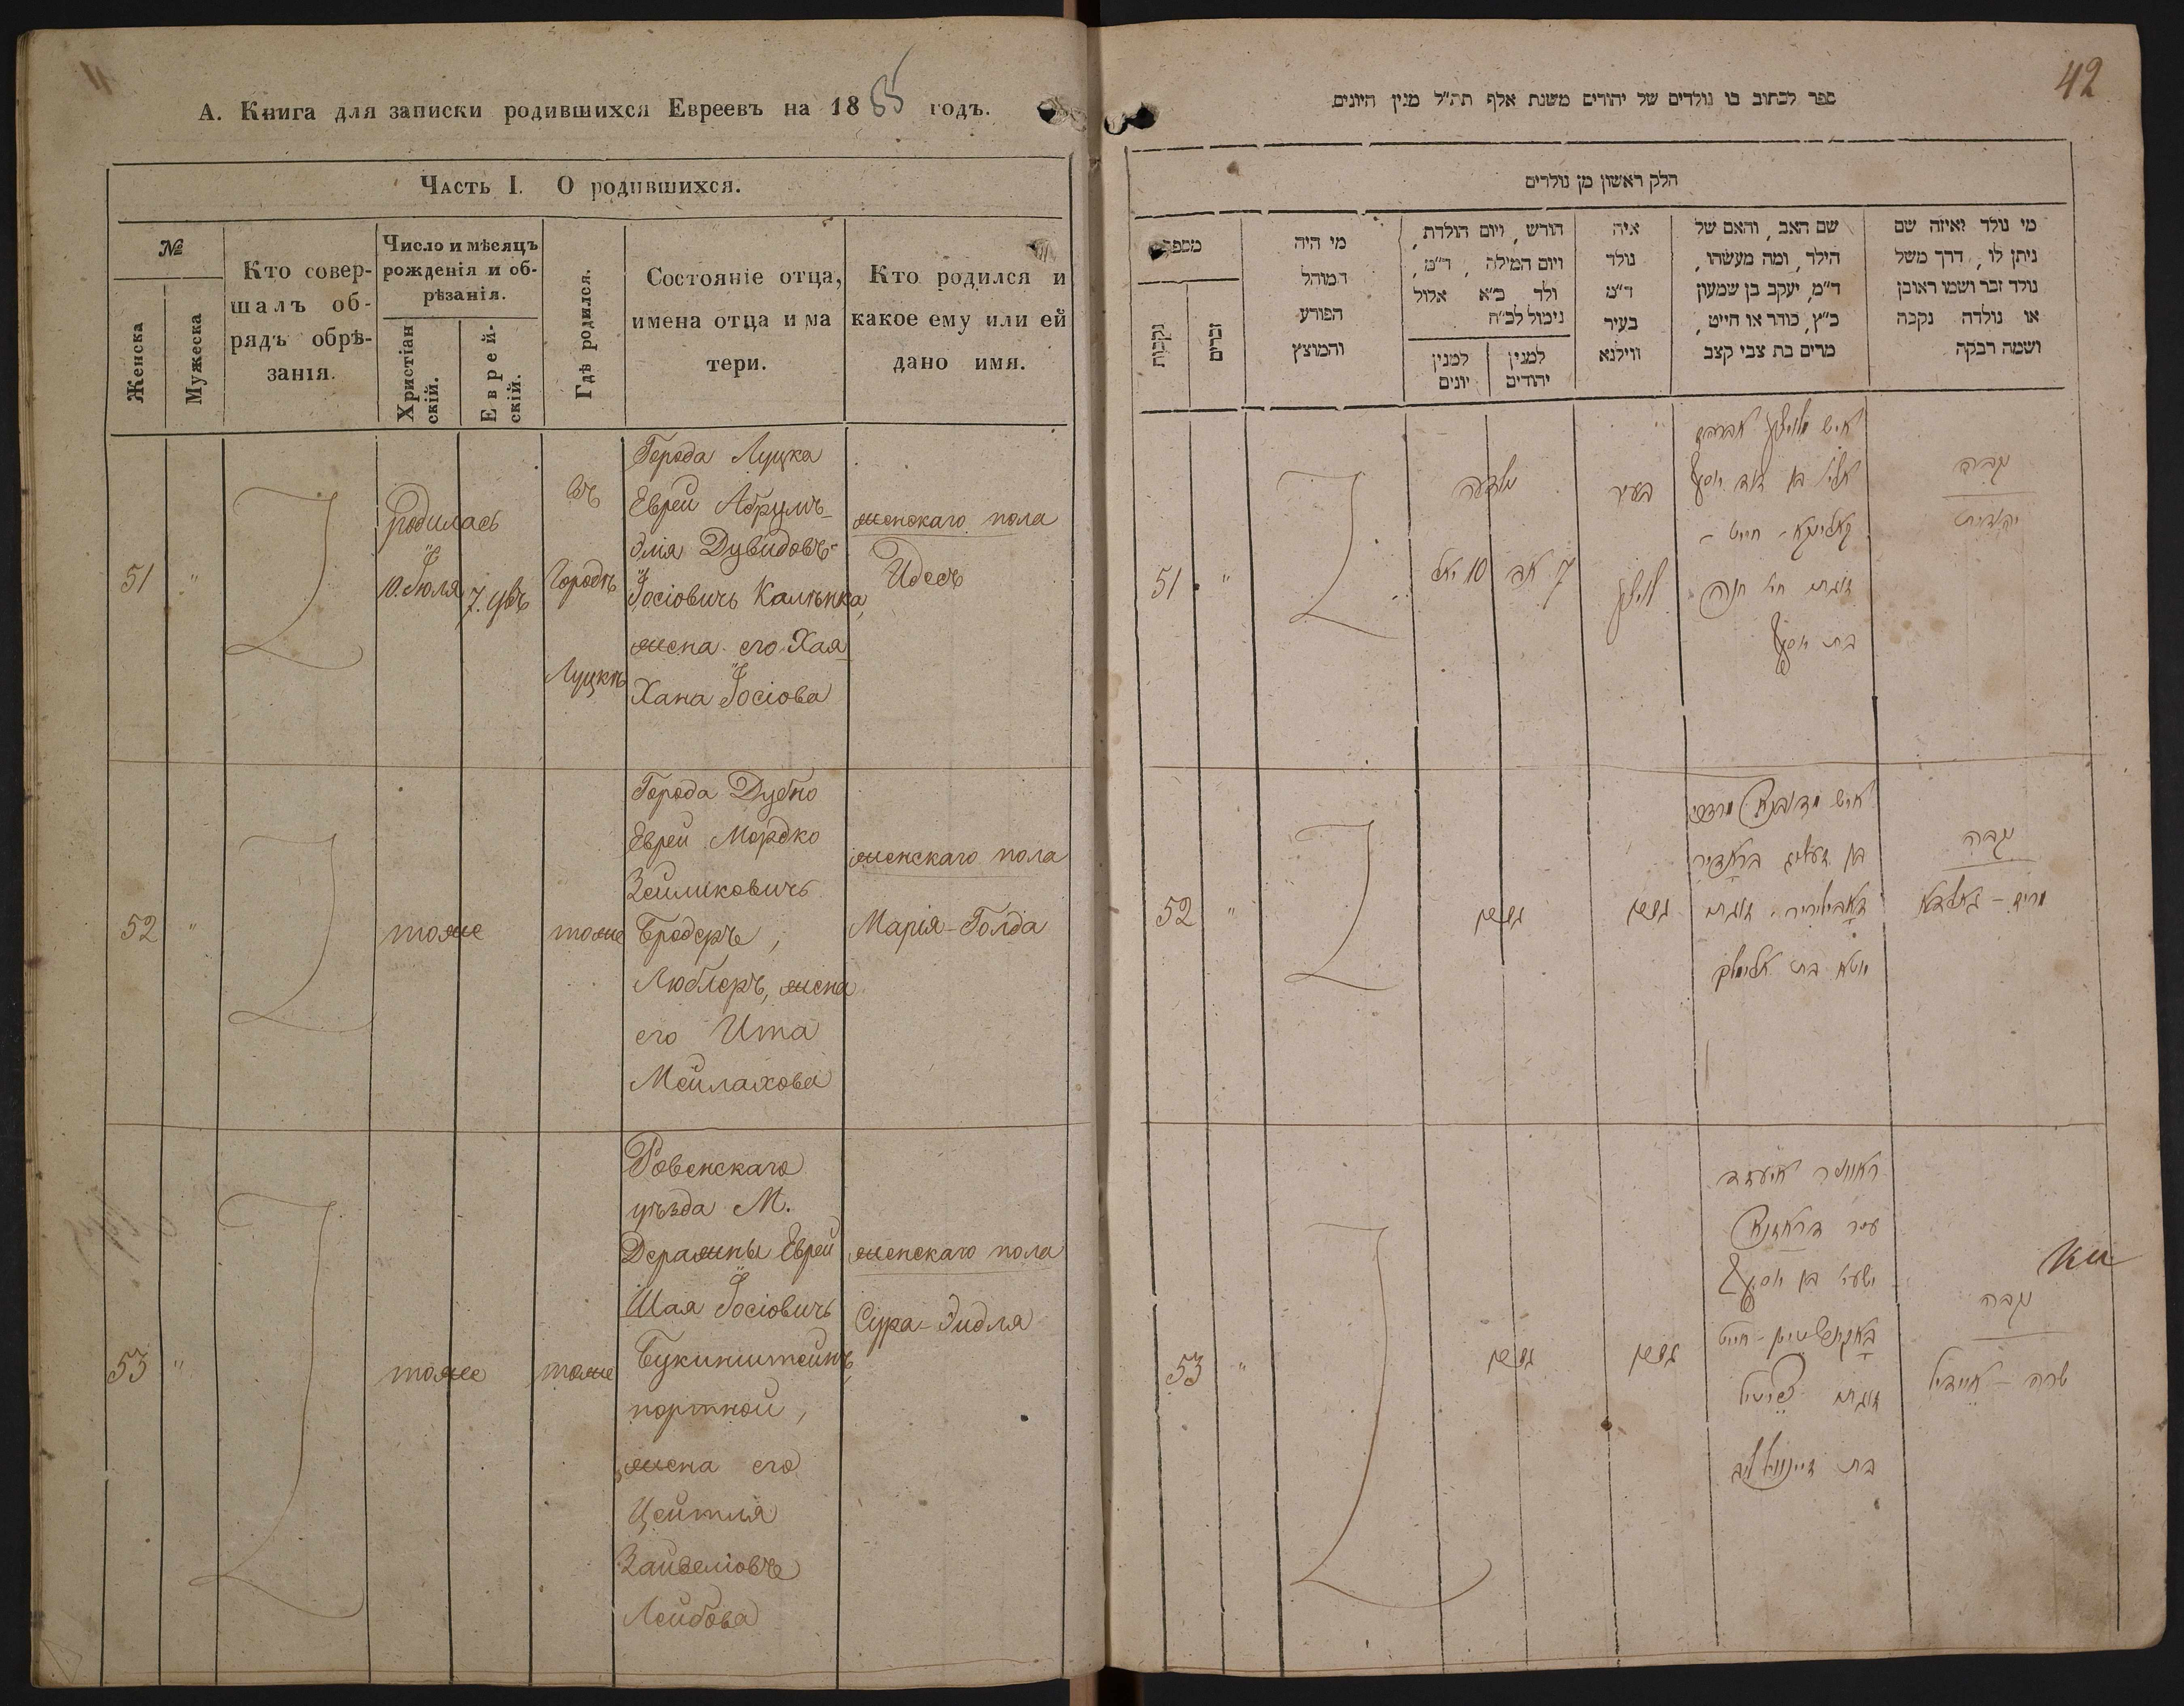 А. Книга для записки родившихся Евреевъ на 1885 годъ.
Часть I. О родившихся.
№
Женска
Мужеска
Кто совер-
шалъ об-
рядъ обрѣ-
занія.
Число и мѣсяцъ
рожденія и об-
рѣзанія.
Христіан
скій.
Еврей-
скій.
Гдѣ родился.
Состояніе отца,
имена отца и ма
тери.
Кто родился и
какое ему или ей
дано имя.
51
"
родилась
10. Іюля
7. Увъ
въ
Городѣ
Луцкѣ
Города Луцка
Еврей Абрумъ-
Элія Дувидовъ-
Іосіовичъ Калѣнка,
жена его Хая
Хана Іосіова
женскаго пола
Идесъ
52
"
тоже
тоже
Города Дубно
Еврей Мордко
Зейликовичъ
Бродеръ,
Люблеръ, жена
его Ита
Мейлахова
женскаго пола
Марія-Голда
53
"
тоже
тоже
Ровенскаго
уѣзда М.
Деражны Еврей
Шая Іосіовичъ
Букинштейнъ,
портной,
жена его
Цейтля
Зайвеліовъ
Лейбова
женскаго пола
Сура-Эидля
42
ספר לכתוב בו נולדים של יהודים משנת אלף תת"ל מנין היונים
חלק ראשון מן נולדים
מספר
נקבות
זכרים
מי היה
המוהל
הפורע
והמוצץ
חודש, ויום הולדת,
ויום המילה, ד"מ,
ולד כ"א אלול
נימול לכ"ח
למנין
יונים
למנין
יהודים
איה
נולד
ד"מ
בעיר
ווילנא
שם האב, והאם של
הילד, ומה מעשהו,
ד"מ, יעקב בן שמעון
כ"ץ, כודר או חייט,
מרים בת צבי קצב
מי נולד ואיזה שם
ניתן לו, דרך משל
נולד זכר ושמו ראובן
או נולדה נקבה
ושמה רבקה
51
"
נולדה
10 יול
7 אב
בעיר
לוצק
איש לוצק אברהם
אלי' בן דוד יוסף
קאלינקא - חייט -
זוגתו חי' חנה
בת יוסף
נקבה
יהודית
52
"
בן זעליג בראדיר
נקבה
מרים - גאלדא
53
"
ישעי' בן יוסף
זוגתו צייטיל
נקבה
שרה - איידיל